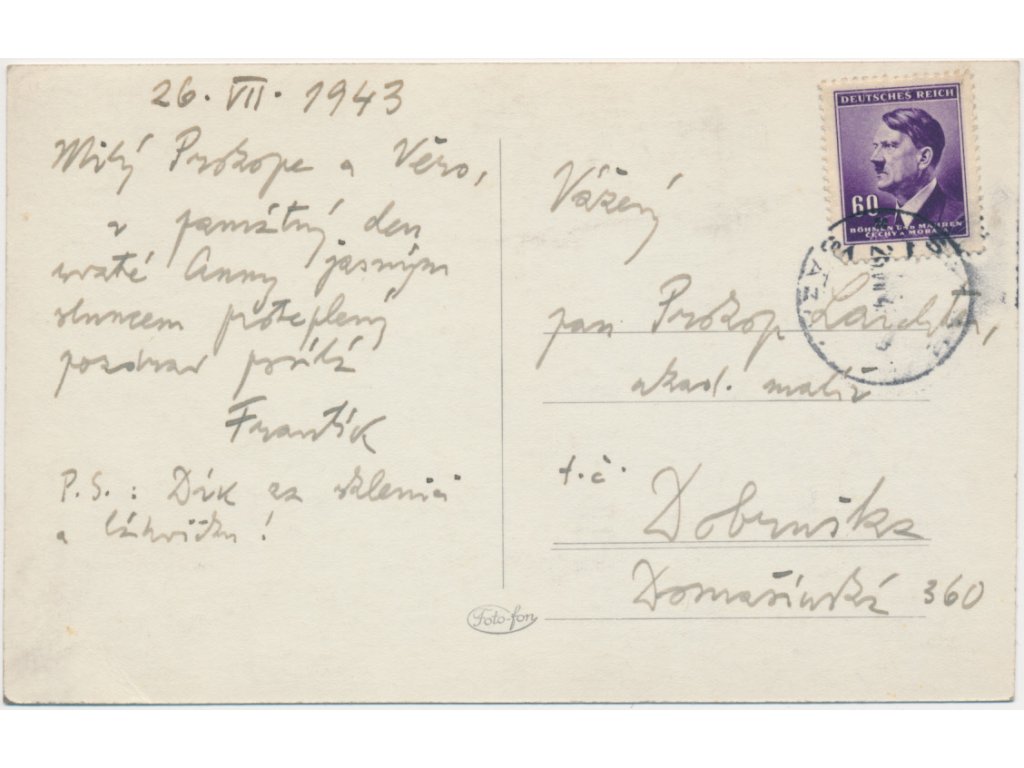 26. VII. 1943
Milý Prokope a Věro,
v památný den
svaté Anny jasným
sluncem proteplený
pozdrav posílá
Frantík
P. S.: Dík za sklenici
a lahvičku!
DEUTSCHES REICH
60
BÖHMEN UND MÄHREN
ČECHY A MORAVA
Vážený
pan Prokop Laichter,
akad. malíř
t. č.
Dobruška
Domašínská 360
Foto-fon